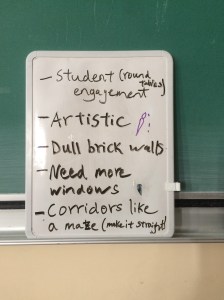 - Student (round tables)
engagement
- Artistic
- Dull brick walls
- Need more
windows
- Corridors like
a maze (make it straight)